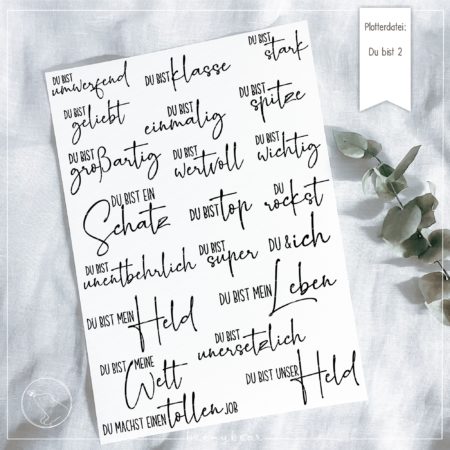 Plotterdatei:
Du bist 2
DU BIST umwerfend
DU BIST klasse
DU BIST stark
DU BIST geliebt
DU BIST einmalig
DU BIST spitze
DU BIST großartig
DU BIST wertvoll
DU BIST wichtig
DU BIST EIN Schatz
DU BIST top
DU rockst
DU BIST unentbehrlich
DU BIST super
DU & ich
DU BIST MEIN Held
DU BIST MEIN Leben
DU BIST MEINE Welt
DU BIST unersetzlich
DU BIST UNSER Held
DU MACHST EINEN tollen JOB